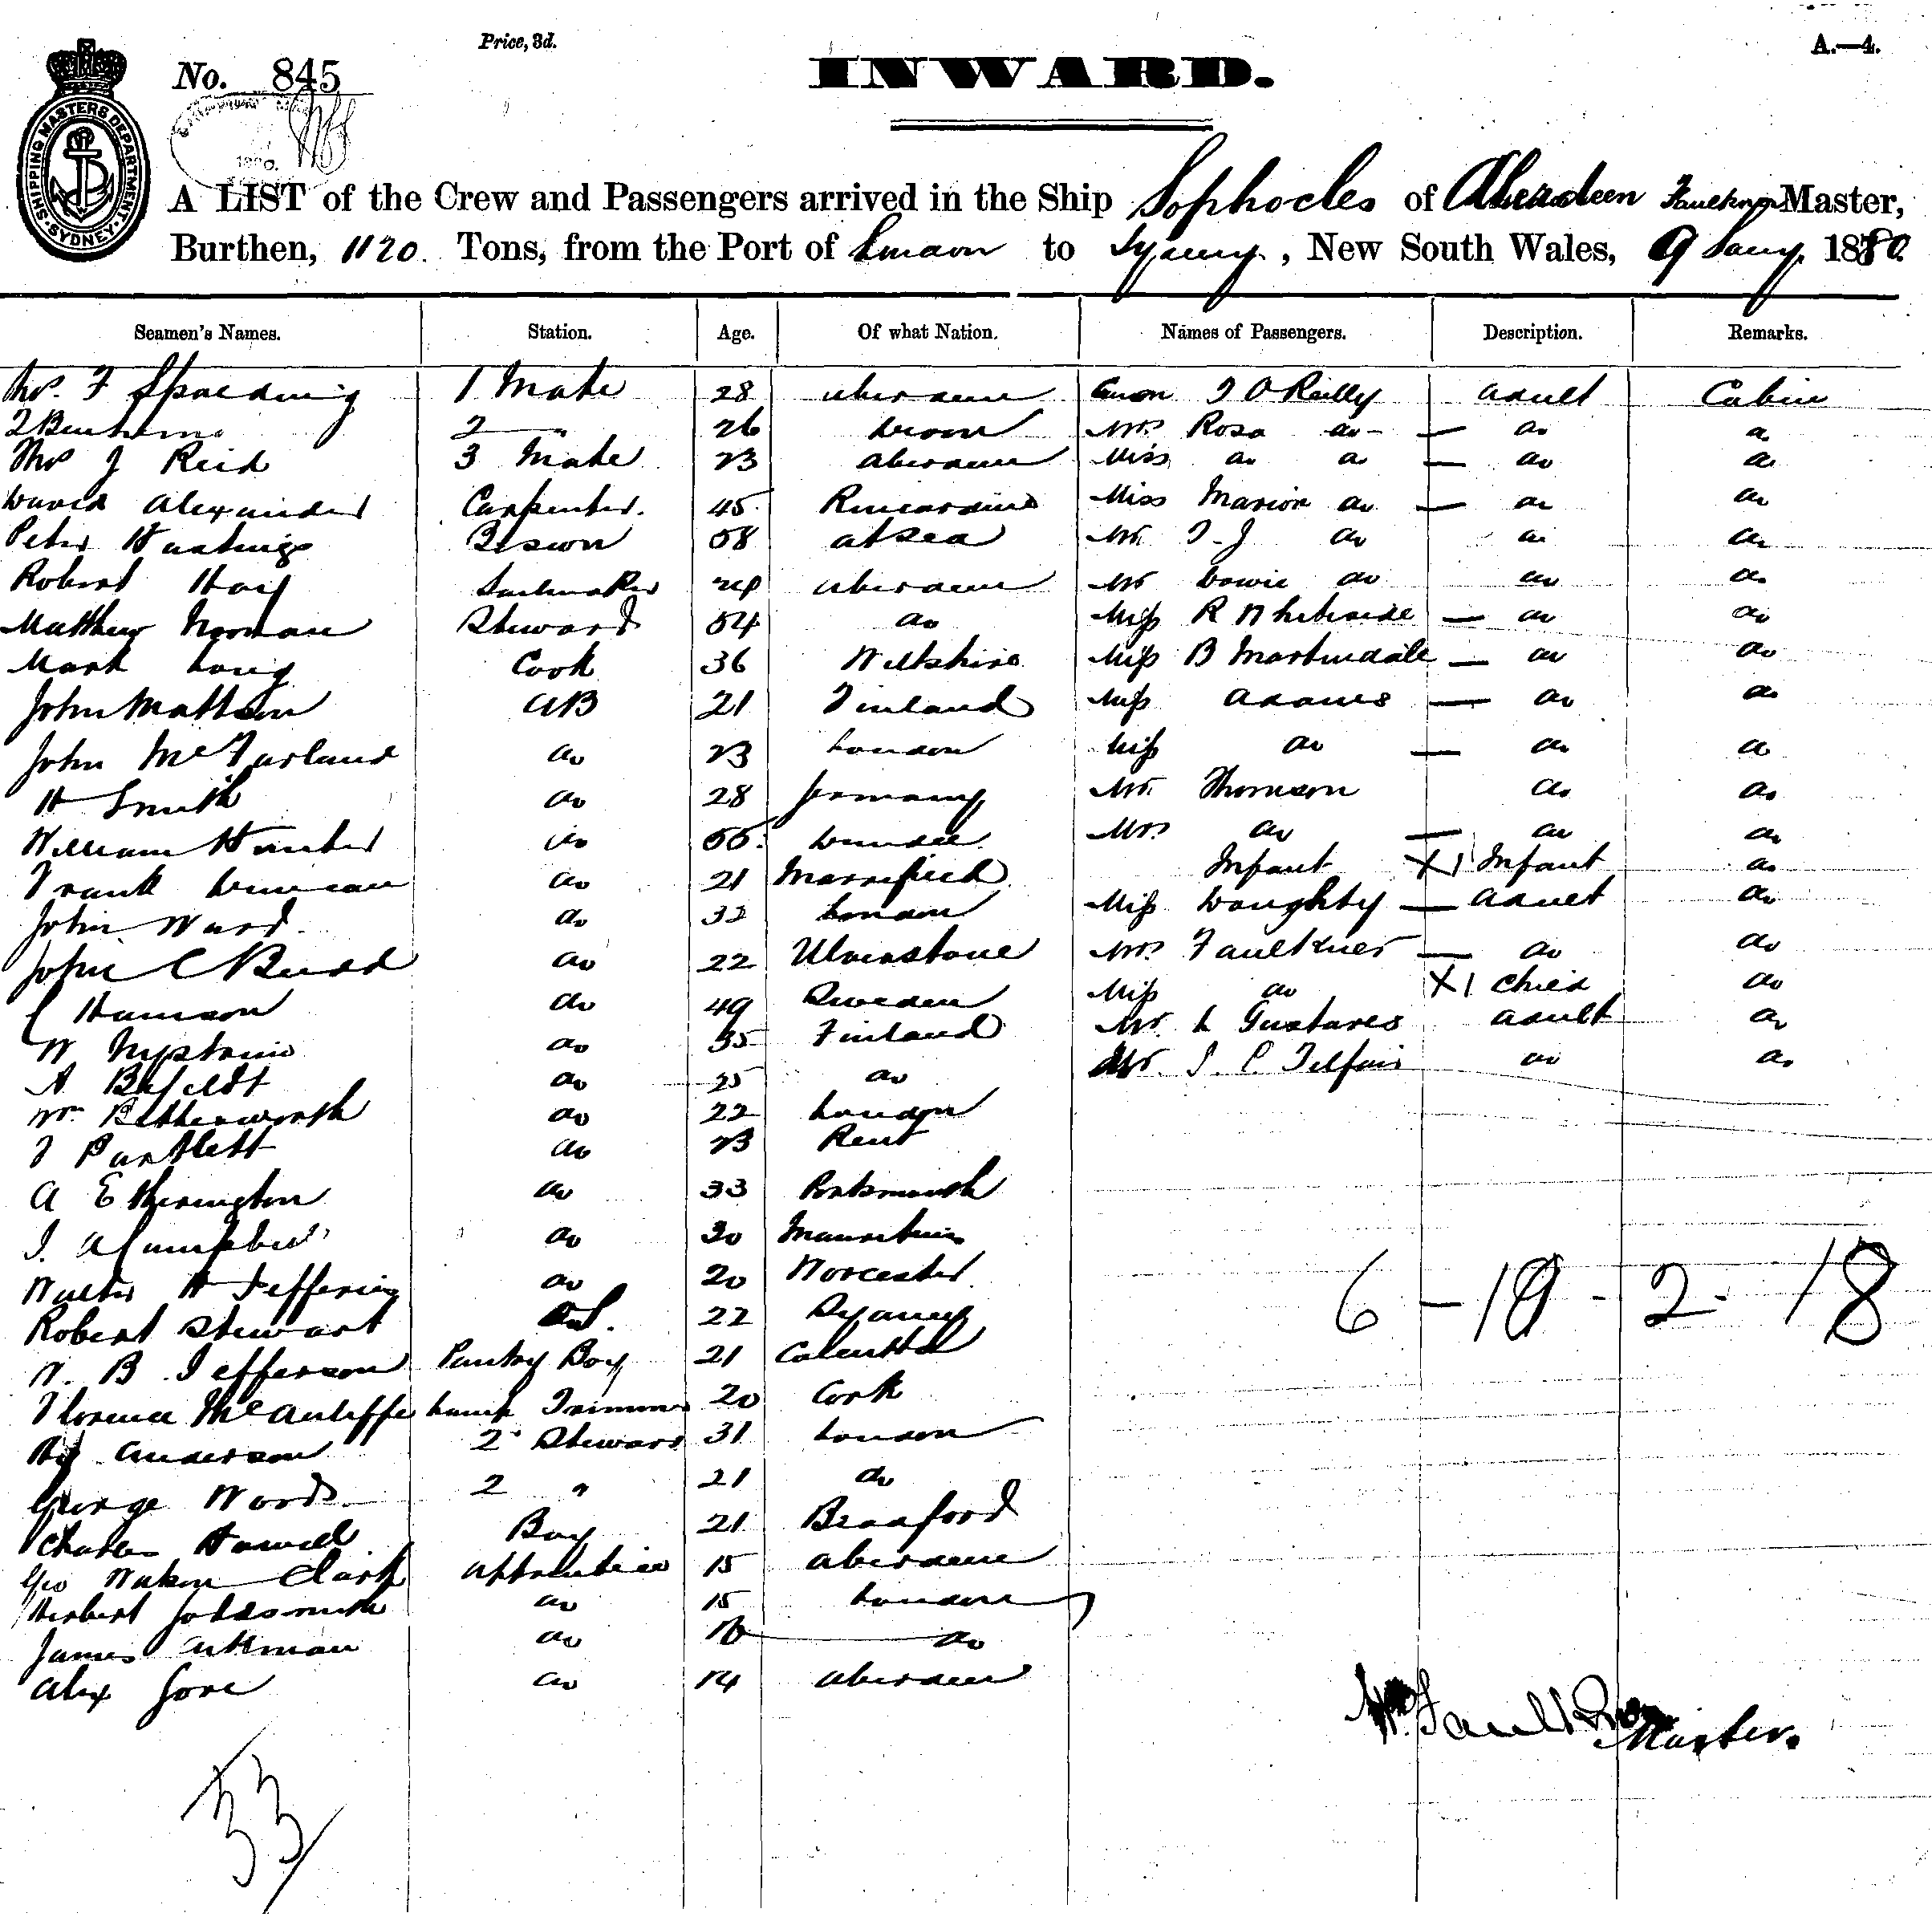 Price, 3d.
A.—4.
No. 845
INWARD.
SHIPPING MASTERS DEPARTMENT SYDNEY
A LIST of the Crew and Passengers arrived in the Ship Sophocles of Aberdeen Faulkner Master,
Burthen, 1120. Tons, from the Port of London to Sydney, New South Wales, 9 Jany. 1880.
Seamen's Names. Station. Age. Of what Nation. Names of Passengers. Description. Remarks.
Spalding 1 Mate 28 Aberdeen T O'Reilly adult Cabin
2 " 26 Mrs Rosa do — do do
Thos J Reid 3 Mate 23 Aberdeen Miss do do — do do
David Alexander Carpenter. 45 Kincardine Miss Marion do — do do
Peter Hastings Bosun 58 at sea Mr T. J do do do
Robert Hay Sailmaker 24 Aberdeen Mr Dowie do do do
Matthew Steward 54 do Miss R Whiteside — do do
Mark Long Cook 36 Wiltshire Miss B Martindale — do do
John Mattson AB 21 Finland Miss Adams — do do
John McFarland do 23 London Miss do — do do
H Smith do 28 Germany Mr. Thomson do do
William Hunter do 55 Dundee Mrs do — do do
Frank Duncan do 21 Infant X1 Infant do
John Ward do 32 London Miss Doughty — adult do
John C Budd do 22 Ulverstone Mrs Faulkner — do do
do 49 Sweden Miss do X1 child do
do 35 Finland Mr. L Gustaves adult do
do 25 do Mr. J. C Telfair do do
Wm Betherworth do 22 London
T Bartlett do 23 Kent
A Etherington do 33 Portsmouth
J. A Campbell do 30 Mauritius
Walter H Jeffering do 20 Worcester
Robert Stewart O.S. 22 Sydney
W. B Jefferson Pantry Boy 21 Calcutta
Florence McAuliffe Lamp Trimmer 20 Cork
Anderson 2 Steward 31 London
George Woods 2 " 21 do
Charles Boy 21 Bradford
Geo Clark apprentice 15 Aberdeen
Herbert Goldsmith do 15 London
James do 16 do
Alex Gore do 14 Aberdeen
6 - 10 - 2 - 18
Wm Faulkner Master.
33